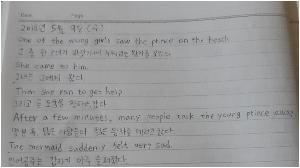 2012년 5월 9일 (수)
One of the young girls saw the prince on the beach.
She came to him.
그녀는 그에게 왔다.
Then she ran to get help.
그리고 는 도움을
After a few minutes, many people took the young prince away.
몇 분 후, 많은 사람들이 젊은 왕자를 데리고 갔다.
The mermaid suddenly felt very sad.
인어공주는 갑자기 아주 슬퍼졌다.